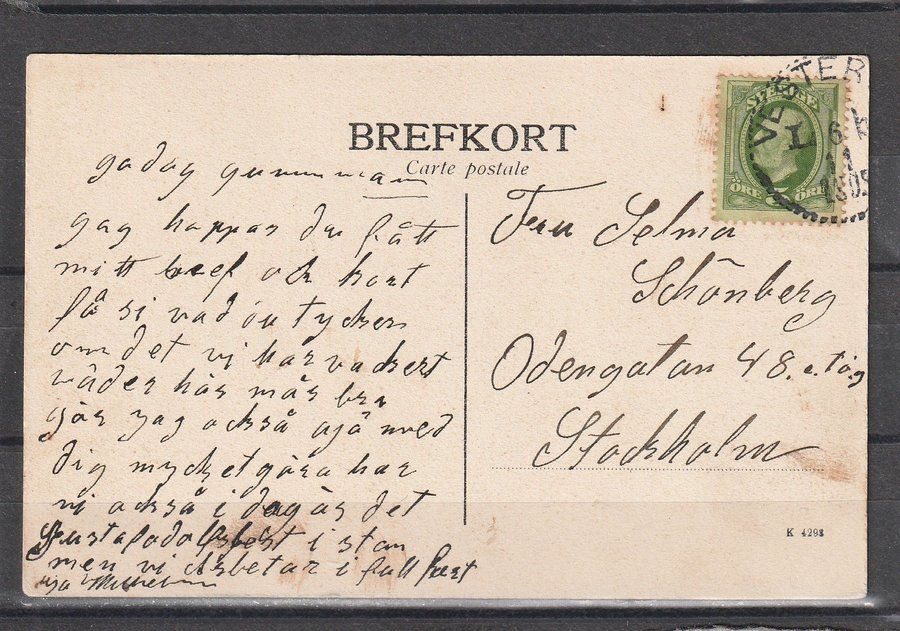 BREFKORT
Carte postale
godag gumman
gag happas du fått
mitt bref ock kort
få si vad du tycker
om det vi har vackert
väder här mår bra
gör jag också ajö med
dig mycket göra har
vi också i dag är det
Gustafadolfsfest i stan
men vi arbetar i full fart
SVERIGE
ÖRE 5 ÖRE
VESTER
6
11
Fru Selma
Schönberg
Odengatan 48. 2. tr. g
Stockholm
K 4293